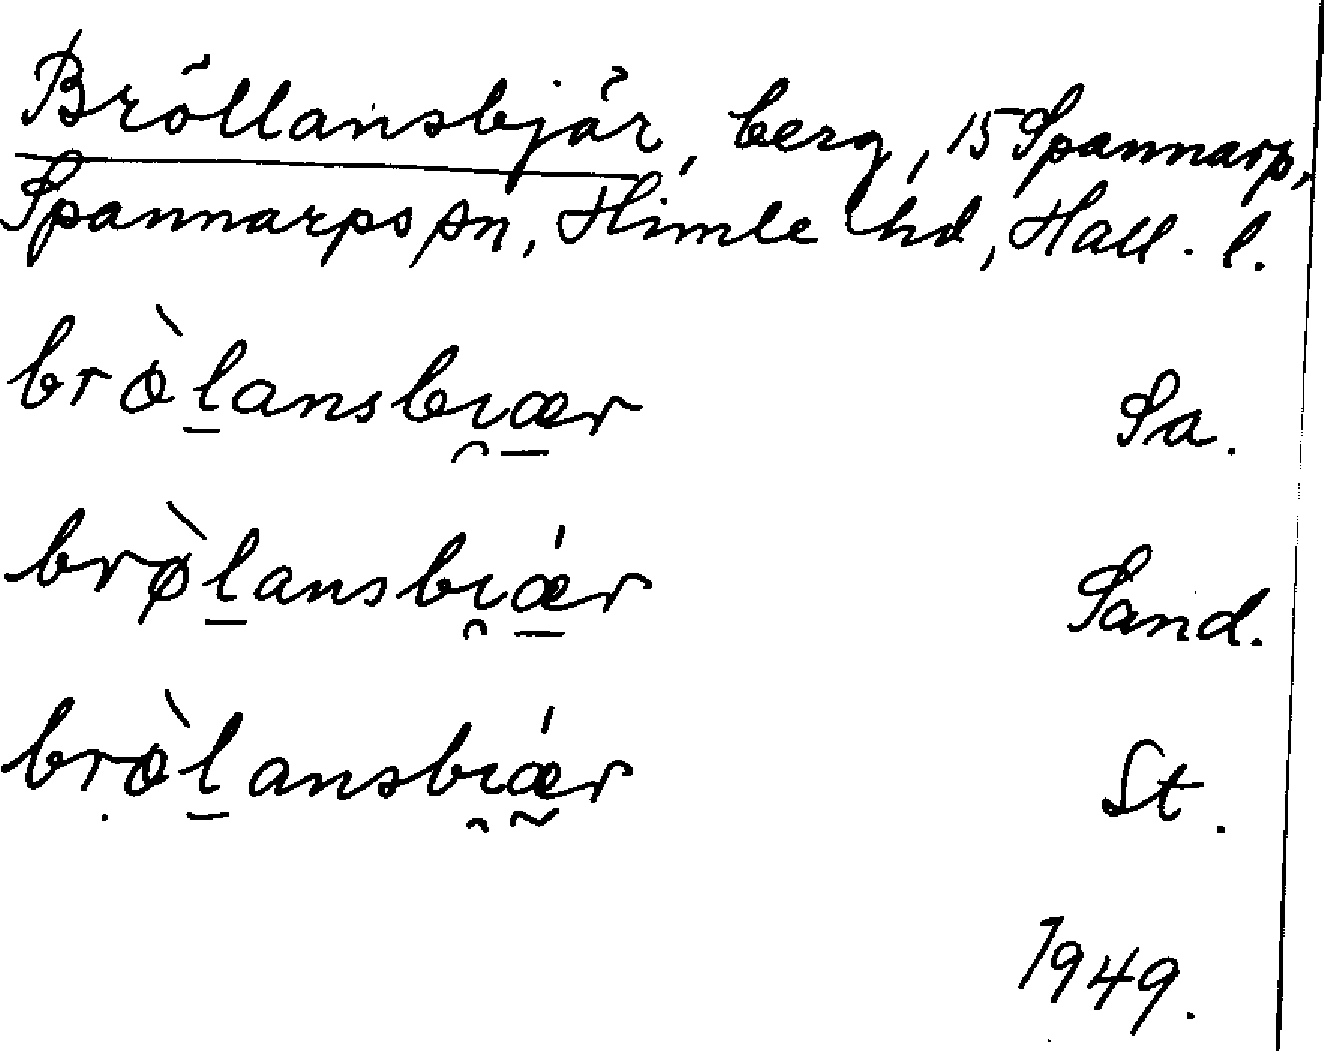 Bröllansbjär, berg, 15 Spannarp,
Spannarps sn, Himle hd, Hall. l.
brø̀l̲ansbı̯æ̲r Sa.
brø̀l̲ansbı̯ǽ̲r Sand.
bṛø̀l̲ansbı̯ǽ̰r St.
1949.